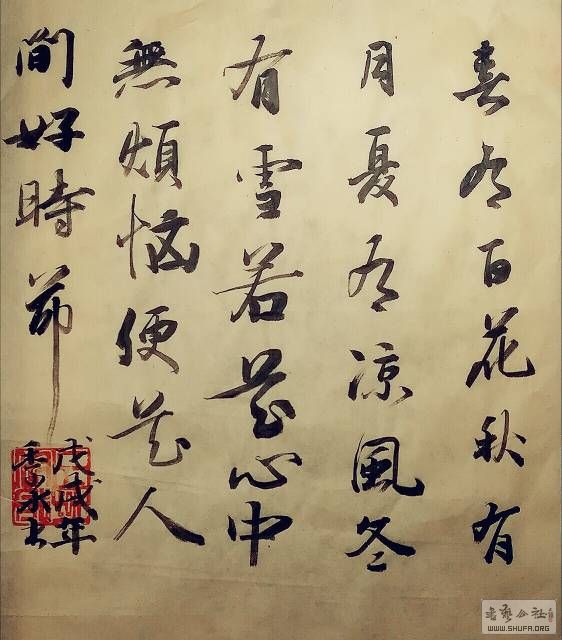 春有百花秋有
月夏有凉風冬
有雪若是心中
無煩恼便是人
间好時節
戊戌年
書藝公社
WWW.SHUFA.ORG